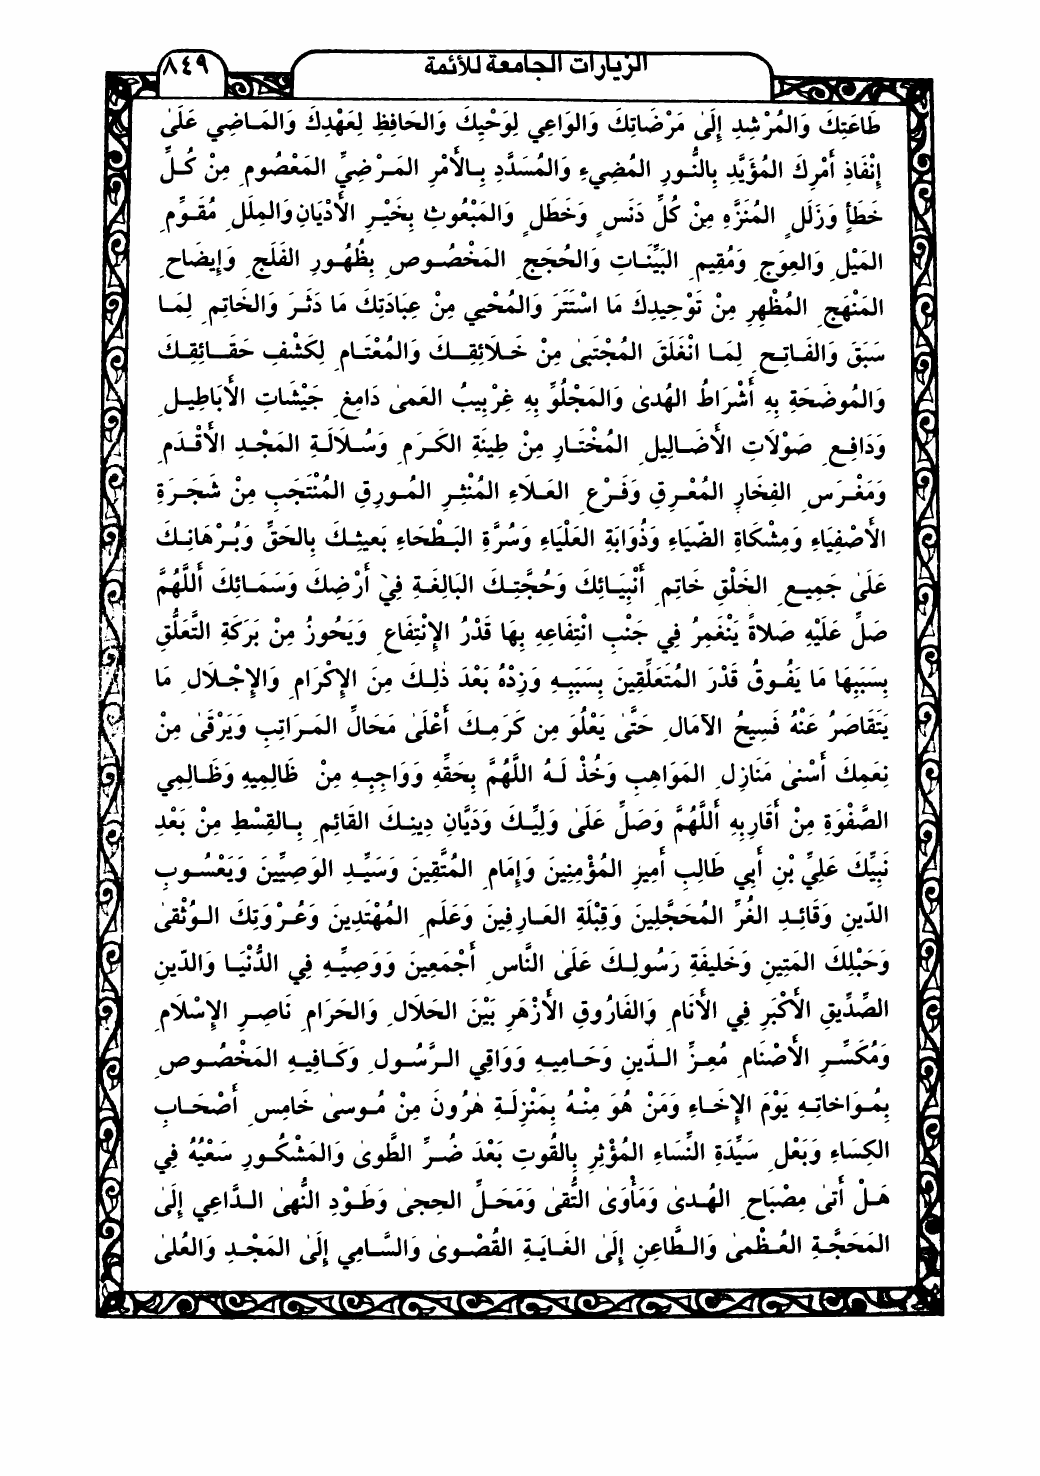 الزيارات الجامعة للأئمة
٨٤٩
طَاعَتِكَ وَالمُرْشِدِ إِلَىٰ مَرْضَاتِكَ وَالوَاعِي لِوَحْيِكَ وَالحَافِظِ لِعَهْدِكَ وَالمَاضِي عَلَىٰ
إِنْفَاذِ أَمْرِكَ المُؤَيَّدِ بِالنُّورِ المُضِيءِ وَالمُسَدَّدِ بِالأَمْرِ المَرْضِيِّ المَعْصُومِ مِنْ كُلِّ
خَطَأٍ وَزَلَلٍ المُنَزَّهِ مِنْ كُلِّ دَنَسٍ وَخَطَلٍ وَالمَبْعُوثِ بِخَيْرِ الأَدْيَانِ وَالمِلَلِ مُقَوِّمِ
المَيْلِ وَالعِوَجِ وَمُقِيمِ البَيِّنَاتِ وَالحُجَجِ المَخْصُوصِ بِظُهُورِ الفَلَجِ وَإِيضَاحِ
المَنْهَجِ المُظْهِرِ مِنْ تَوْحِيدِكَ مَا اسْتَتَرَ وَالمُحْيِي مِنْ عِبَادَتِكَ مَا دَثَرَ وَالخَاتِمِ لِمَا
سَبَقَ وَالفَاتِحِ لِمَا انْغَلَقَ المُجْتَبَىٰ مِنْ خَلَائِقِكَ وَالمُعْتَامِ لِكَشْفِ حَقَائِقِكَ
وَالمُوضَحَةِ بِهِ أَشْرَاطُ الهُدىٰ وَالمَجْلُوِّ بِهِ غِرْبِيبُ العَمىٰ دَامِغِ جَيْشَاتِ الأَبَاطِيلِ
وَدَافِعِ صَوْلَاتِ الأَضَالِيلِ المُخْتَارِ مِنْ طِينَةِ الكَرَمِ وَسُلَالَةِ المَجْدِ الأَقْدَمِ
وَمَغْرَسِ الفِخَارِ المُعْرِقِ وَفَرْعِ العَلَاءِ المُثْمِرِ المُورِقِ المُنْتَجَبِ مِنْ شَجَرَةِ
الأَصْفِيَاءِ وَمِشْكَاةِ الضِّيَاءِ وَذُوَابَةِ العَلْيَاءِ وَسُرَّةِ البَطْحَاءِ بَعِيثِكَ بِالحَقِّ وَبُرْهَانِكَ
عَلَىٰ جَمِيعِ الخَلْقِ خَاتِمِ أَنْبِيَائِكَ وَحُجَّتِكَ البَالِغَةِ فِي أَرْضِكَ وَسَمَائِكَ أَللَّهُمَّ
صَلِّ عَلَيْهِ صَلاةً يَنْغَمِرُ فِي جَنْبِ انْتِفَاعِهِ بِهَا قَدْرُ الإِنْتِفَاعِ وَيَحُوزُ مِنْ بَرَكَةِ التَّعَلُّقِ
بِسَبَبِهَا مَا يَفُوقُ قَدْرَ المُتَعَلِّقِينَ بِسَبَبِهِ وَزِدْهُ بَعْدَ ذٰلِكَ مِنَ الإِكْرَامِ وَالإِجْلَالِ مَا
يَتَقَاصَرُ عَنْهُ فَسِيحُ الآمَالِ حَتَّىٰ يَعْلُوَ مِن كَرَمِكَ أَعْلَىٰ مَحَالِّ المَرَاتِبِ وَيَرْقَىٰ مِنْ
نِعَمِكَ أَسْنىٰ مَنَازِلِ المَوَاهِبِ وَخُذْ لَهُ اللَّهُمَّ بِحَقِّهِ وَوَاجِبِهِ مِنْ ظَالِمِيهِ وَظَالِمِي
الصَّفْوَةِ مِنْ أَقَارِبِهِ أَللَّهُمَّ وَصَلِّ عَلَىٰ وَلِيِّكَ وَدَيَّانِ دِينِكَ القَائِمِ بِالقِسْطِ مِنْ بَعْدِ
نَبِيِّكَ عَلِيِّ بْنِ أَبِي طَالِبِ أَمِيرِ المُؤْمِنِينَ وَإِمَامِ المُتَّقِينَ وَسَيِّدِ الوَصِيِّينَ وَيَعْسُوبِ
الدِّينِ وَقَائِدِ الغُرِّ المُحَجَّلِينَ وَقِبْلَةِ العَارِفِينَ وَعَلَمِ المُهْتَدِينَ وَعُرْوَتِكَ الوُثْقىٰ
وَحَبْلِكَ المَتِينِ وَخَلِيفَةِ رَسُولِكَ عَلَىٰ النَّاسِ أَجْمَعِينَ وَوَصِيِّهِ فِي الدُّنْيَا وَالدِّينِ
الصِّدِّيقِ الأَكْبَرِ فِي الأَنَامِ وَالفَارُوقِ الأَزْهَرِ بَيْنَ الحَلَالِ وَالحَرَامِ نَاصِرِ الإِسْلَامِ
وَمُكَسِّرِ الأَصْنَامِ مُعِزِّ الدِّينِ وَحَامِيهِ وَوَاقِي الرَّسُولِ وَكَافِيهِ المَخْصُوصِ
بِمُوَاخاتِهِ يَوْمَ الإِخَاءِ وَمَنْ هُوَ مِنْهُ بِمَنْزِلَةِ هٰرُونَ مِنْ مُوسىٰ خَامِسِ أَصْحَابِ
الكِسَاءِ وَبَعْلِ سَيِّدَةِ النِّسَاءِ المُؤْثِرِ بِالقُوتِ بَعْدَ ضُرِّ الطَّوىٰ وَالمَشْكُورِ سَعْيُهُ فِي
هَلْ أَتىٰ مِصْبَاحِ الهُدىٰ وَمَأْوَىٰ التُّقىٰ وَمَحَلِّ الحِجىٰ وَطَوْدِ النُّهىٰ الدَّاعِي إِلَىٰ
المَحَجَّةِ العُظْمىٰ وَالظَّاعِنِ إِلَىٰ الغَايَةِ القُصْوىٰ وَالسَّامِي إِلَىٰ المَجْدِ وَالعُلىٰ